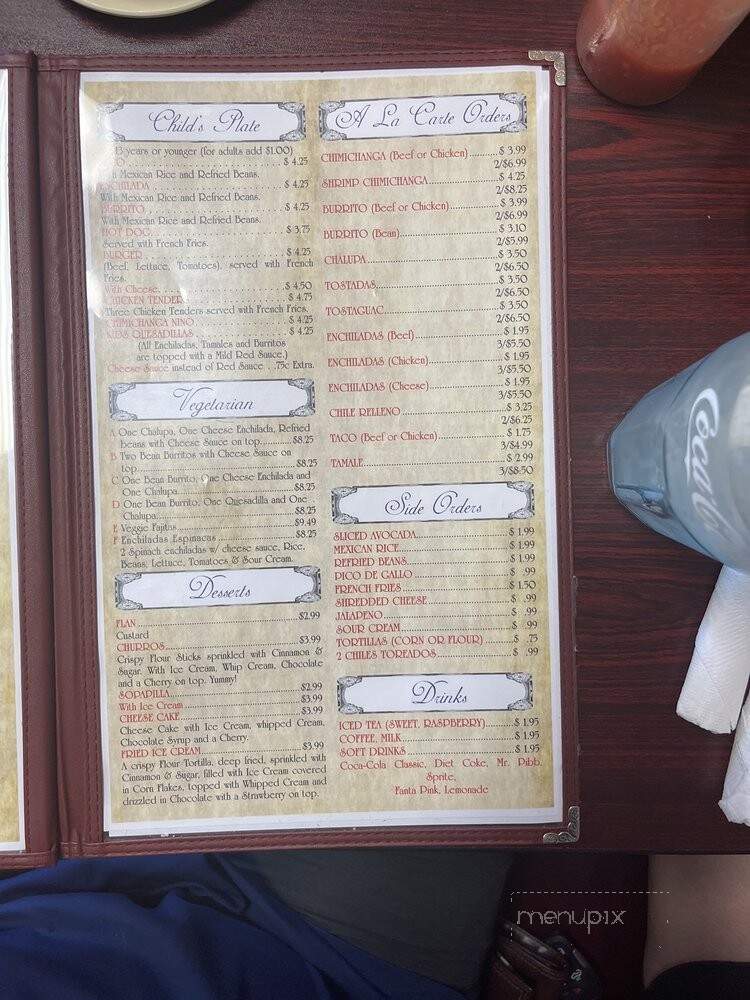 Child's Plate
13 years or younger (for adults add $1.00)
$ 4.25
Mexican Rice and Refried Beans.
$ 4.25
With Mexican Rice and Refried Beans.
BURRITO $ 4.25
With Mexican Rice and Refried Beans.
HOT DOG $ 3.75
Served with French Fries.
BURGER $ 4.25
(Beef, Lettuce, Tomatoes), served with French
Fries.
With Cheese $ 4.50
CHICKEN TENDER $ 4.75
Three Chicken Tenders served with French Fries.
CHIMICHANGA NINO $ 4.25
KIDS QUESADILLAS $ 4.25
(All Enchiladas, Tamales and Burritos
are topped with a Mild Red Sauce.)
Cheese Sauce instead of Red Sauce . .75c Extra.
Vegetarian
A One Chalupa, One Cheese Enchilada, Refried
beans with Cheese Sauce on top $8.25
B Two Bean Burritos with Cheese Sauce on
top $8.25
C One Bean Burrito, One Cheese Enchilada and
One Chalupa $8.25
D One Bean Burrito, One Quesadilla and One
Chalupa $8.25
E Veggie Fajitas $9.49
F Enchiladas Espinacas $8.25
2 Spinach enchiladas w/ cheese sauce, Rice,
Beans, Lettuce, Tomatoes & Sour Cream.
Desserts
FLAN $2.99
Custard
CHURROS $3.99
Crispy Flour Sticks sprinkled with Cinnamon &
Sugar. With Ice Cream, Whip Cream, Chocolate
and a Cherry on top. Yummy!
SOPAPILLA $2.99
With Ice Cream $3.99
CHEESE CAKE $3.99
Cheese Cake with Ice Cream, whipped Cream,
Chocolate Syrup and a Cherry.
FRIED ICE CREAM $3.99
A crispy Flour Tortilla, deep fried, sprinkled with
Cinnamon & Sugar, filled with Ice Cream covered
in Corn Flakes, topped with Whipped Cream and
drizzled in Chocolate with a Strawberry on top.
A La Carte Orders
CHIMICHANGA (Beef or Chicken) $ 3.99
2/$6.99
SHRIMP CHIMICHANGA $ 4.25
2/$8.25
BURRITO (Beef or Chicken) $ 3.99
2/$6.99
BURRITO (Bean) $ 3.10
2/$5.99
CHALUPA $ 3.50
2/$6.50
TOSTADAS $ 3.50
2/$6.50
TOSTAGUAC $ 3.50
2/$6.50
ENCHILADAS (Beef) $ 1.95
3/$5.50
ENCHILADAS (Chicken) $ 1.95
3/$5.50
ENCHILADAS (Cheese) $ 1.95
3/$5.50
CHILE RELLENO $ 3.25
2/$6.25
TACO (Beef or Chicken) $ 1.75
3/$4.99
TAMALE $ 2.99
3/$8.50
Side Orders
SLICED AVOCADA $ 1.99
MEXICAN RICE $ 1.99
REFRIED BEANS $ 1.99
PICO DE GALLO $ .99
FRENCH FRIES $ 1.50
SHREDDED CHEESE $ .99
JALAPENO $ .99
SOUR CREAM $ .99
TORTILLAS (CORN OR FLOUR) $ .75
2 CHILES TOREADOS $ .99
Drinks
ICED TEA (SWEET, RASPBERRY) $ 1.95
COFFEE, MILK $ 1.95
SOFT DRINKS $ 1.95
Coca-Cola Classic, Diet Coke, Mr. Pibb,
Sprite,
Fanta Pink, Lemonade
menupix